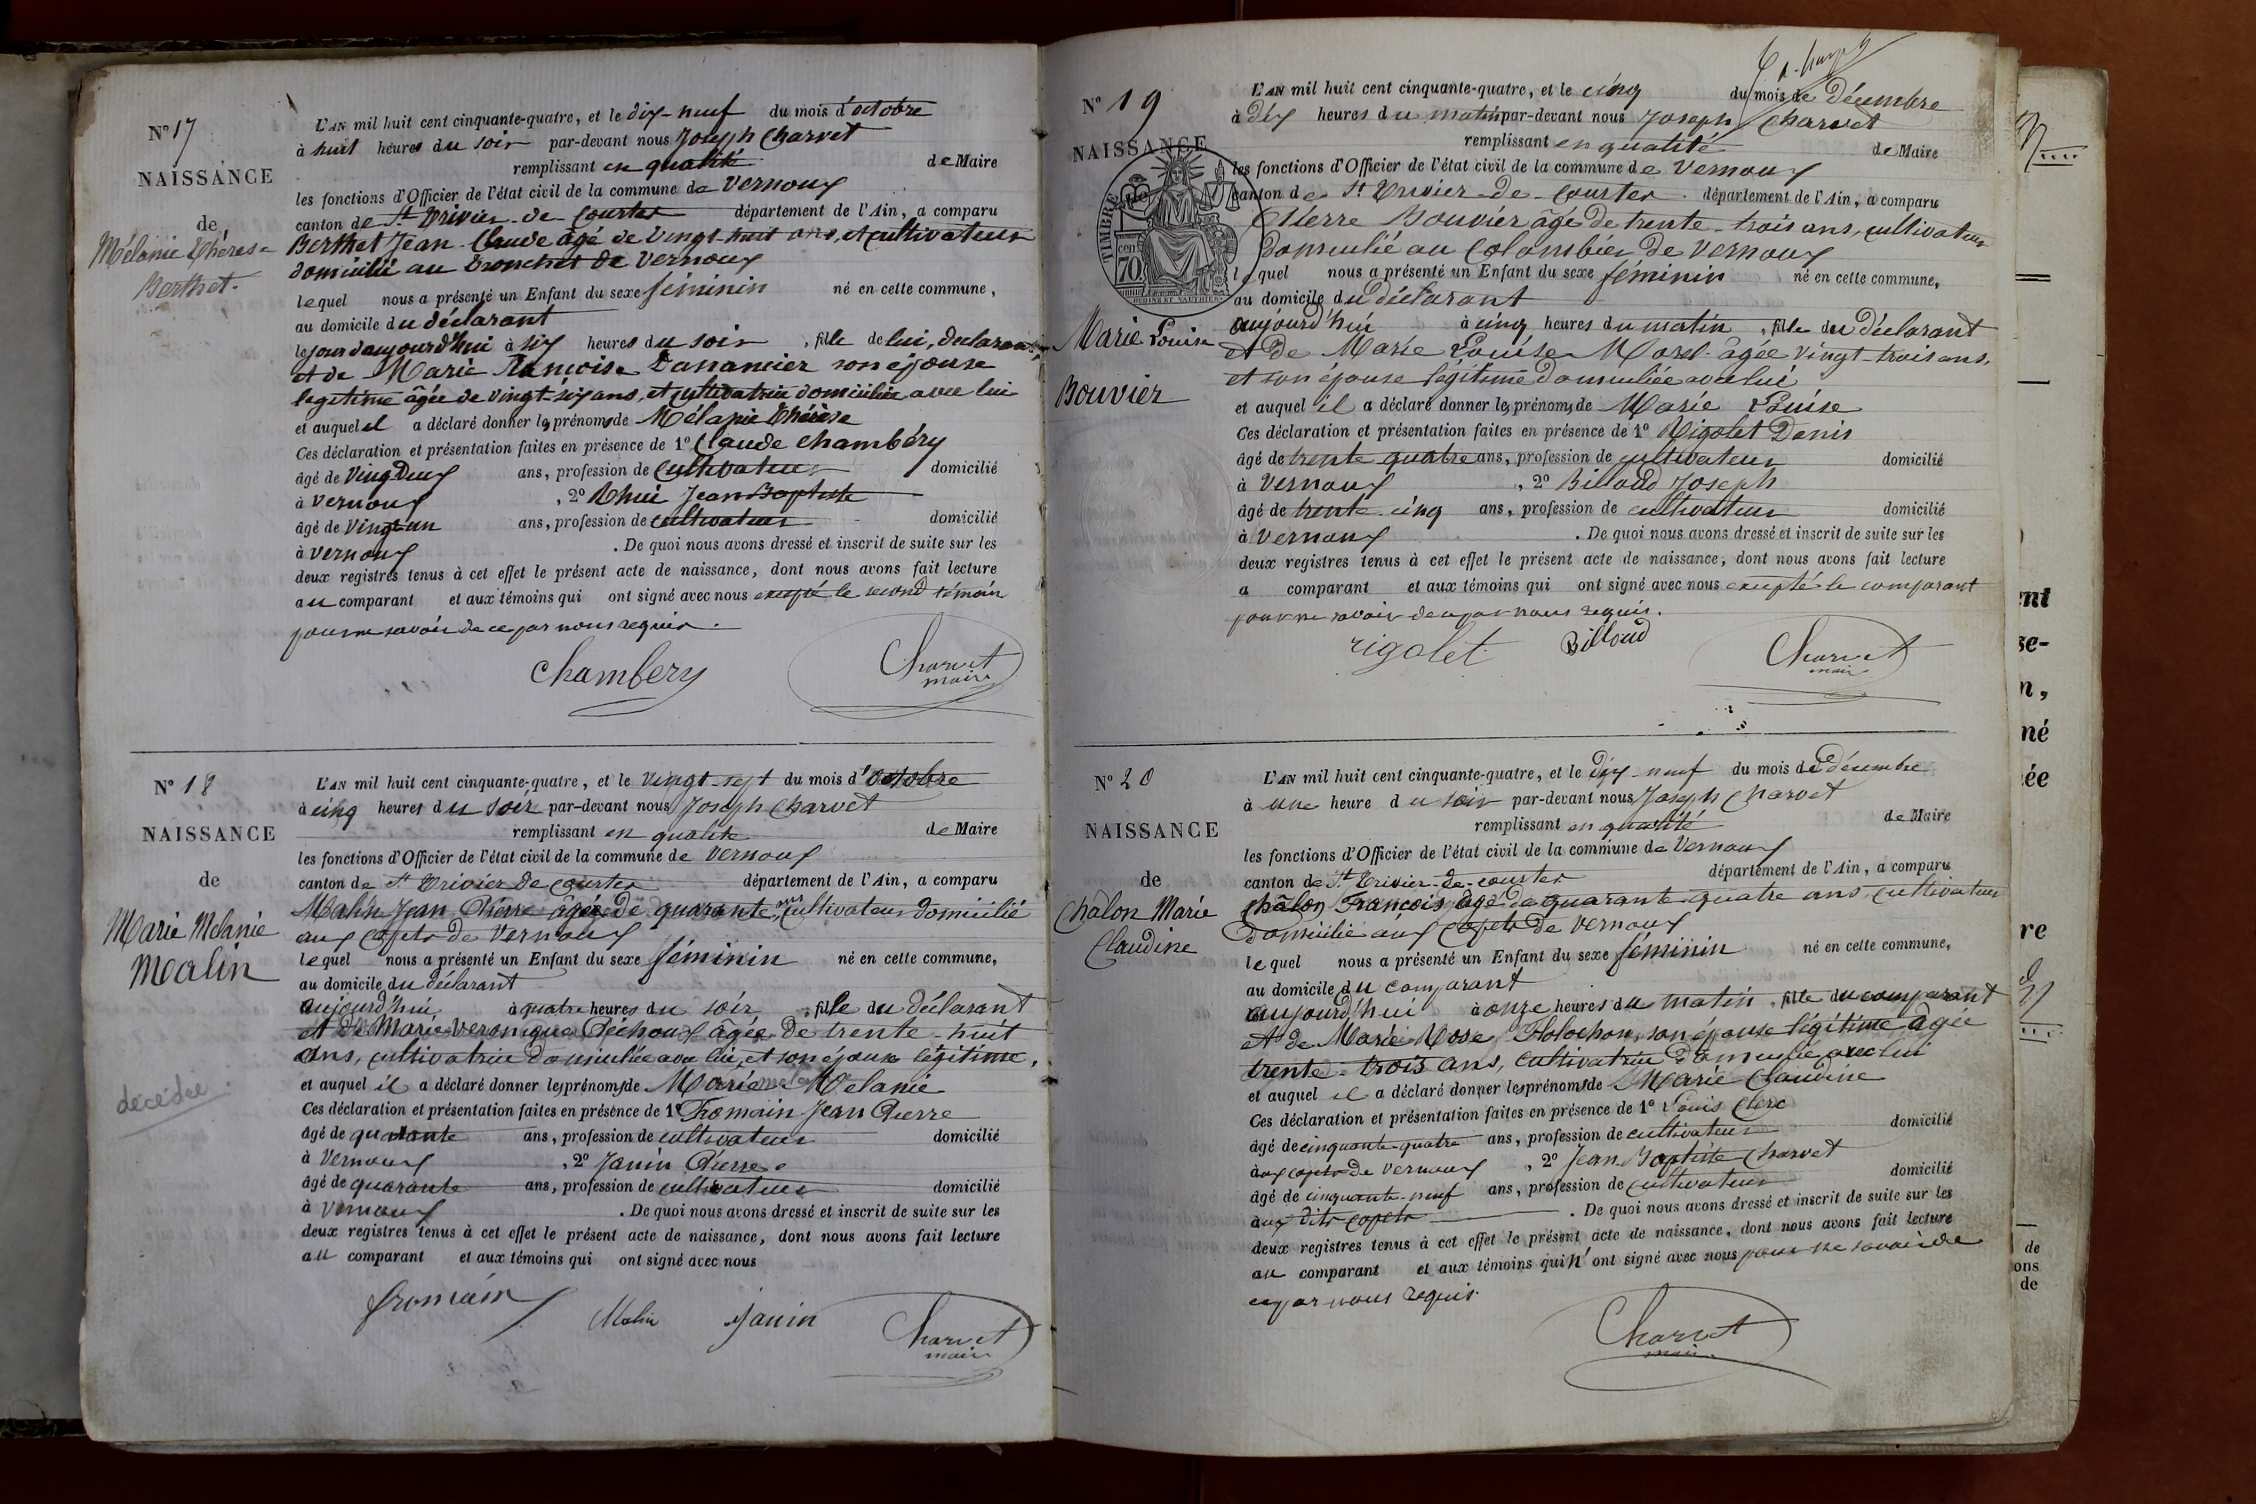 N° 17
NAISSANCE
de
Mélanie Thérèse
Berthet.
L'AN mil huit cent cinquante-quatre, et le dix-neuf du mois d'octobre
à huit heures du soir par-devant nous Joseph Charvet
remplissant en qualité de Maire
les fonctions d'Officier de l'état civil de la commune de Vernoux
canton de St Trivier-de-Courtes département de l'Ain, a comparu
Berthet Jean-Claude âgé de vingt-huit ans, et cultivateur
domicilié au Tronchet de Vernoux
lequel nous a présenté un Enfant du sexe féminin né en cette commune,
au domicile du déclarant
le jour d'aujourd'hui à six heures du soir, fille de lui, déclarant
et de Marie Françoise son épouse
légitime âgée de vingt-six ans, et cultivatrice domiciliée avec lui
et auquel il a déclaré donner les prénoms de Mélanie Thérèse
Ces déclaration et présentation faites en présence de 1° Claude Chambéry
âgé de vingt Deux ans, profession de cultivateur domicilié
à Vernoux, 2° Thui Jean Baptiste
âgé de vingt un ans, profession de cultivateur domicilié
à Vernoux. De quoi nous avons dressé et inscrit de suite sur les
deux registres tenus à cet effet le présent acte de naissance, dont nous avons fait lecture
au comparant et aux témoins qui ont signé avec nous excepté le second témoin
pour ne savoir de ce par nous requis.
Chambery
Charvet
maire
N° 18
NAISSANCE
de
Marie Mélanie
Malin
decédée
L'AN mil huit cent cinquante-quatre, et le vingt-sept du mois d'octobre
à cinq heures du soir par-devant nous Joseph Charvet
remplissant en qualité de Maire
les fonctions d'Officier de l'état civil de la commune de Vernoux
canton de St Trivier de Courtes département de l'Ain, a comparu
Malin Jean Pierre âgée de quarante ans, cultivateur domicilié
aux Copets de Vernoux
lequel nous a présenté un Enfant du sexe féminin né en cette commune,
au domicile du déclarant
aujourd'hui à quatre heures du soir, fille du déclarant
et de Marie Veronique Péchoux âgée de trente-huit
ans, cultivatrice domiciliée avec lui, et son épouse légitime,
et auquel il a déclaré donner les prénoms de Marie Mélanie
Ces déclaration et présentation faites en présence de 1° Fromain Jean Pierre
âgé de quarante ans, profession de cultivateur domicilié
à Vernoux, 2° Janin Pierre
âgé de quarante ans, profession de cultivateur domicilié
à Vernoux. De quoi nous avons dressé et inscrit de suite sur les
deux registres tenus à cet effet le présent acte de naissance, dont nous avons fait lecture
au comparant et aux témoins qui ont signé avec nous
fromain Malin Janin
Charvet
maire
N° 19
NAISSANCE
de
TIMBRE
70
Marie Louise
Bouvier
L'AN mil huit cent cinquante-quatre, et le cinq du mois de décembre
à dix heures du matin par-devant nous Joseph Charvet
remplissant en qualité de Maire
les fonctions d'Officier de l'état civil de la commune de Vernoux
canton de St Trivier-de-Courtes département de l'Ain, a comparu
Pierre Bouvier âgé de trente-trois ans, cultivateur
domicilié au Colombier de Vernoux
lequel nous a présenté un Enfant du sexe féminin né en cette commune,
au domicile du déclarant
aujourd'hui à cinq heures du matin, fille du déclarant
et de Marie Louise Morel âgée vingt-trois ans,
et son épouse légitime domiciliée avec lui
et auquel il a déclaré donner les prénoms de Marie Louise
Ces déclaration et présentation faites en présence de 1° Rigolet Denis
âgé de trente quatre ans, profession de cultivateur domicilié
à Vernoux, 2° Billoud Joseph
âgé de trente-cinq ans, profession de cultivateur domicilié
à Vernoux. De quoi nous avons dressé et inscrit de suite sur les
deux registres tenus à cet effet le présent acte de naissance, dont nous avons fait lecture
a comparant et aux témoins qui ont signé avec nous excepté le comparant
pour ne savoir de ce par nous requis.
rigolet Billoud
Charvet
maire
N° 20
NAISSANCE
de
Châlon Marie
Claudine
L'AN mil huit cent cinquante-quatre, et le dix-neuf du mois de décembre
à une heure du soir par-devant nous Joseph Charvet
remplissant en qualité de Maire
les fonctions d'Officier de l'état civil de la commune de Vernoux
canton de St Trivier-de-Courtes département de l'Ain, a comparu
Châlon François âgé de quarante-quatre ans, cultivateur
domicilié aux Copets de Vernoux
lequel nous a présenté un Enfant du sexe féminin né en cette commune,
au domicile du comparant
aujourd'hui à onze heures du matin, fille du comparant
et de Marie Rose son épouse légitime âgée
trente-trois ans, cultivatrice domiciliée avec lui
et auquel il a déclaré donner les prénoms de Marie Claudine
Ces déclaration et présentation faites en présence de 1° Louis Clerc
âgé de cinquante-quatre ans, profession de cultivateur domicilié
aux copets de Vernoux, 2° Jean-Baptiste Charvet
âgé de cinquante-neuf ans, profession de cultivateur domicilié
aux dits copets. De quoi nous avons dressé et inscrit de suite sur les
deux registres tenus à cet effet le présent acte de naissance, dont nous avons fait lecture
au comparant et aux témoins qui n'ont signé avec nous pour ne savoir de
ce par nous requis.
Charvet
maire